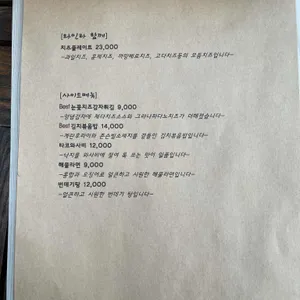 [와인과 함께]
치즈플레이트 23,000
-과일치즈, 훈제치즈, 까망베르치즈, 고다치즈등의 모듬치즈입니다-
[사이드메뉴]
Best 눈꽃치즈감자튀김 9,000
-양념감자에 체다치즈소스와 그라나파다노치즈가 더해졌습니다-
Best 김치볶음밥 14,000
-계란후라이와 콘슨빌소세지를 곁들인 김치볶음밥입니다-
타코와사비 12,000
-낙지를 와사비에 절여 톡 쏘는 맛이 일품입니다-
해물라면 9,000
-홍합과 오징어로 얼큰하고 시원한 해물라면입니다-
번데기탕 12,000
-얼큰하고 시원한 번데기 탕입니다-